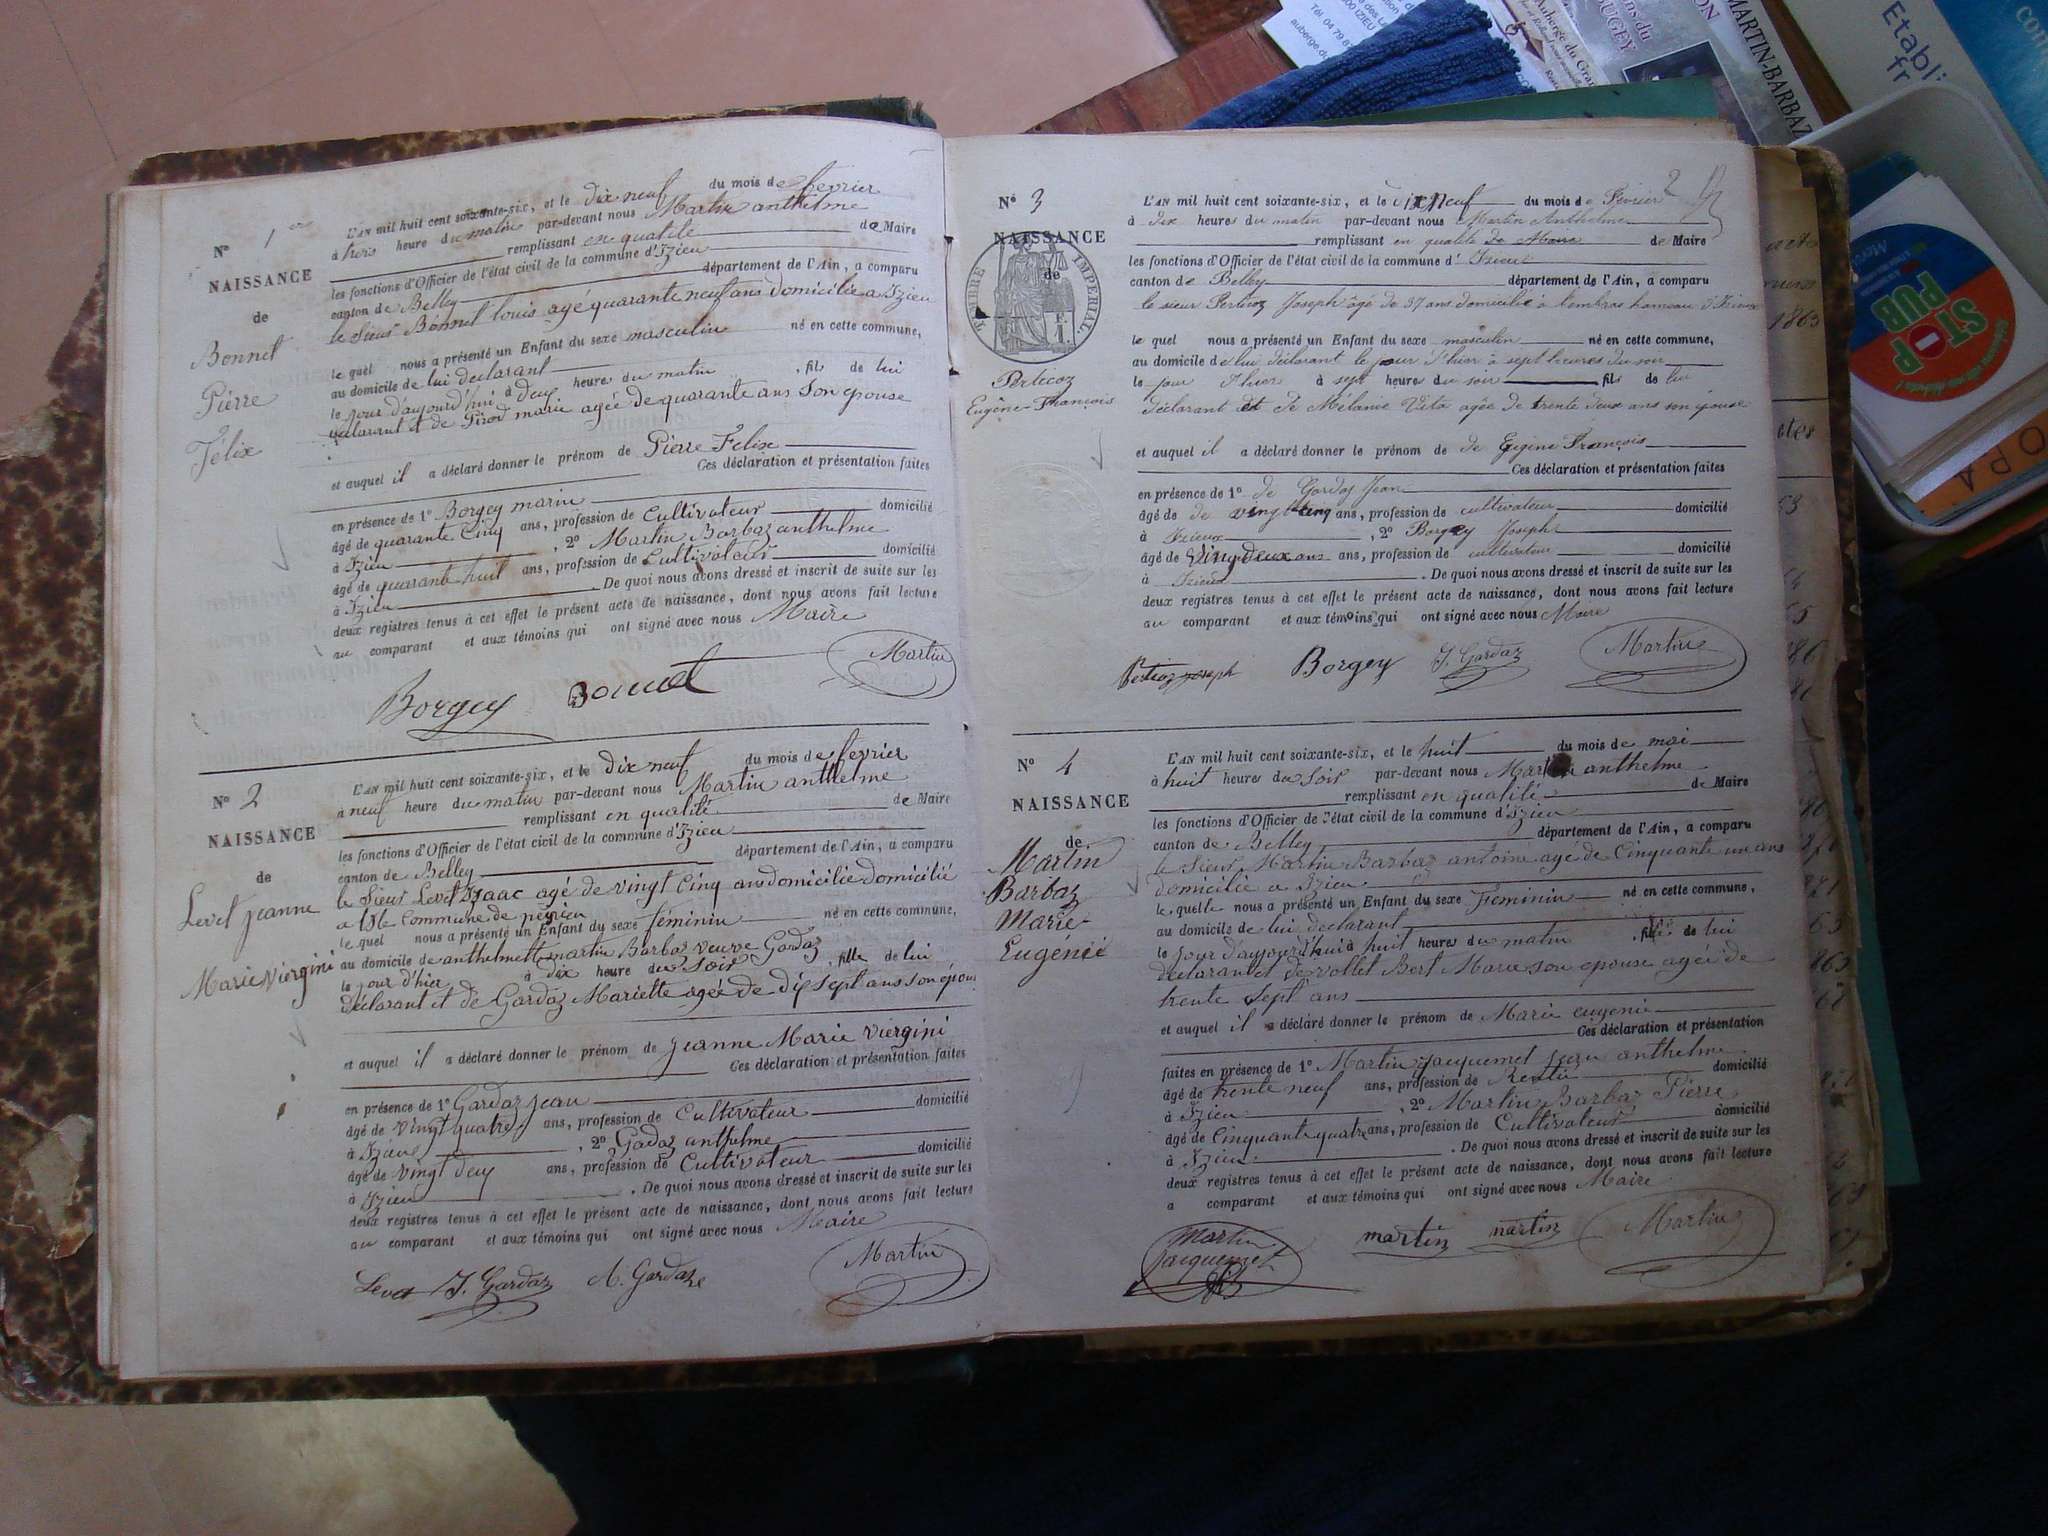 N° 1er
NAISSANCE
de
Bonnet
Pierre
Félix
L'AN mil huit cent soixante-six, et le dix neuf du mois de fevrier
à trois heure du matin par-devant nous Martin anthelme
remplissant en qualité de Maire
les fonctions d'Officier de l'état civil de la commune d'Izieu
canton de Belley département de l'Ain, a comparu
le Sieur Bonnet louis agé quarante neuf ans domicilié a Izieu
le quel nous a présenté un Enfant du sexe masculin né en cette commune,
au domicile de lui declarant
le jour d'aujourd'hui à deux heures du matin , fils de lui
declarant et de Pirod marie agée de quarante ans Son epouse
et auquel il a déclaré donner le prénom de Pierre Felix
Ces déclaration et présentation faites
en présence de 1° Borgey marin
âgé de quarante Cinq ans, profession de Cultivateur domicilié
à Izieu , 2° Martin Barbaz anthelme
âgé de quarante huit ans, profession de Cultivateur domicilié
à Izieu . De quoi nous avons dressé et inscrit de suite sur les
deux registres tenus à cet effet le présent acte de naissance, dont nous avons fait lecture
au comparant et aux témoins qui ont signé avec nous Maire
Borgey Bonnet Martin
N° 2
NAISSANCE
de
Levet jeanne
Marie Viergini
L'AN mil huit cent soixante-six, et le dix neuf du mois de fevrier
à neuf heure du matin par-devant nous Martin anthelme
remplissant en qualité de Maire
les fonctions d'Officier de l'état civil de la commune d'Izieu
canton de Belley département de l'Ain, a comparu
le Sieur Levet Isaac agé de vingt Cinq ans domicilié domicilié
a Commune de peyrieu
le quel nous a présenté un Enfant du sexe féminin né en cette commune,
au domicile de anthelmette martin Barbaz veuve Gardaz
le jour d'hier à dix heure du Soir , fille de lui
déclarant et de Gardaz Mariette agée de dix sept ans son épou
et auquel il a déclaré donner le prénom de jeanne Marie Viergini
Ces déclaration et présentation faites
en présence de 1° Gardaz jean
âgé de vingt quatre ans, profession de Cultivateur domicilié
à Izieu , 2° Gadaz anthelme
âgé de vingt deux ans, profession de Cultivateur domicilié
à Izieu . De quoi nous avons dressé et inscrit de suite sur les
deux registres tenus à cet effet le présent acte de naissance, dont nous avons fait lecture
au comparant et aux témoins qui ont signé avec nous Maire
Levet J. Gardaz A. Gardaze Martin
2
N° 3
NAISSANCE
de
TIMBRE IMPERIAL
1 F.
Perticoz
Eugène-François
L'AN mil huit cent soixante-six, et le dix Neuf du mois de Février
à dix heures du matin par-devant nous Martin Anthelme
remplissant en qualité de Maire de Maire
les fonctions d'Officier de l'état civil de la commune d' Izieu
canton de Belley département de l'Ain, a comparu
le sieur Perticoz Joseph âgé de 37 ans domicilié à Lembras hameau d'Izieux
le quel nous a présenté un Enfant du sexe masculin né en cette commune,
au domicile de lui déclarant le jour d'hier à sept heures du soir
le jour d'hier à sept heures du soir fils de lui
déclarant et de Mélanie Vita agée de trente deux ans son épouse
et auquel il a déclaré donner le prénom de de Eugène François
Ces déclaration et présentation faites
en présence de 1° de Gardaz Jean
âgé de de vingt cinq ans, profession de cultivateur domicilié
à Izieux , 2° Borgey Joseph
âgé de vingt deux ans ans, profession de cultivateur domicilié
à Izieux . De quoi nous avons dressé et inscrit de suite sur les
deux registres tenus à cet effet le présent acte de naissance, dont nous avons fait lecture
au comparant et aux témoins qui ont signé avec nous Maire
Perticoz joseph Borgey J. Gardaz Martin
N° 4
NAISSANCE
de
Martin
Barbaz
Marie
Eugénie
L'AN mil huit cent soixante-six, et le huit du mois de mai
à huit heures du Soir par-devant nous Martin anthelme
remplissant en qualité de Maire
les fonctions d'Officier de l'état civil de la commune d'Izieu
canton de Belley département de l'Ain, a comparu
le Sieur Martin Barbaz antoine agé de Cinquante un ans
domicilié a Izieu
le quelle nous a présenté un Enfant du sexe Feminin né en cette commune,
au domicile de lui declarant
le jour d'aujourd'hui à huit heures du matin , fille de lui
declarant et de vollet Bert Marie son epouse agée de
trente Sept ans
et auquel il a déclaré donner le prénom de Marie eugenie
Ces déclaration et présentation
faites en présence de 1° Martin jacquemet jean anthelme
âgé de trente neuf ans, profession de Rentié domicilié
à Izieu , 2° Martin Barbaz Pierre
âgé de Cinquante quatre ans, profession de Cultivateur domicilié
à Izieu . De quoi nous avons dressé et inscrit de suite sur les
deux registres tenus à cet effet le présent acte de naissance, dont nous avons fait lecture
a comparant et aux témoins qui ont signé avec nous Maire
Martin jacquemet martin martin Martin
Auberge du Gran
BUGEY
MARTIN-BARBAZ
Etabli
fr
STOP
PUB
OPA
1863